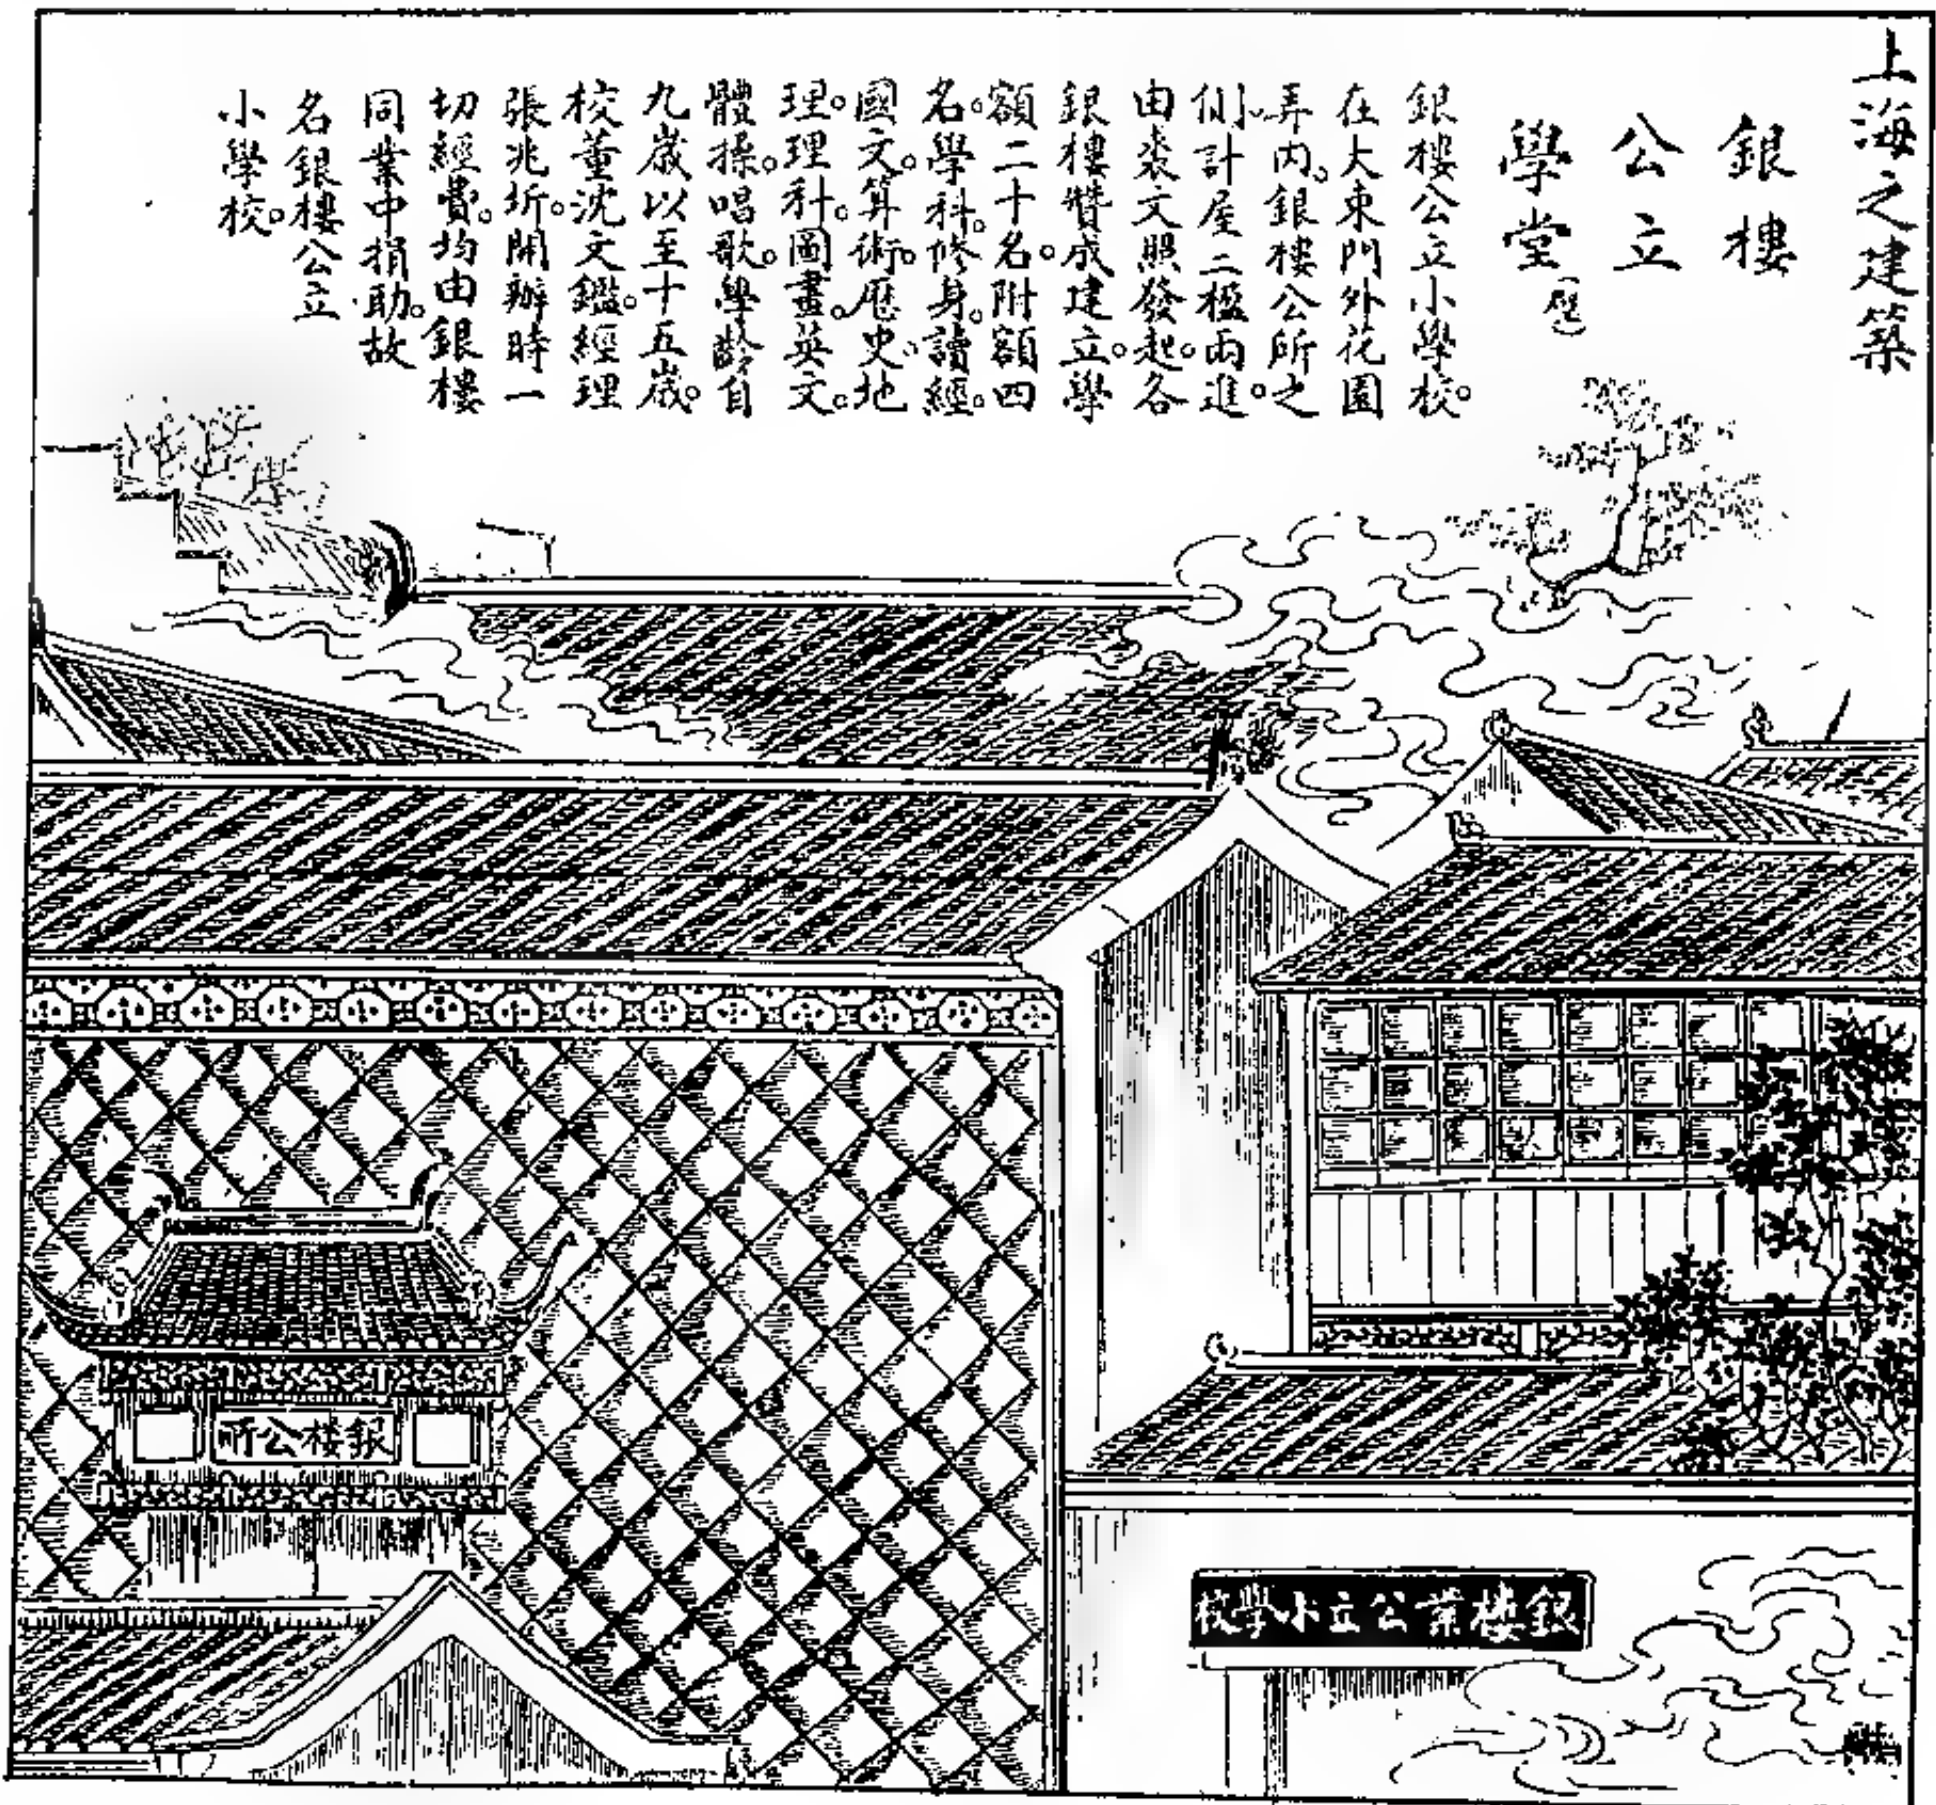 上海之建築
銀樓
公立
學堂
銀樓公立小學校。
在大東門外花園
弄內。銀樓公所之
側、計屋二楹兩進。
由裘文照發起。各
銀樓贊成建立。學
額二十名。附額四
名。學科。修身。讀經。
國文。算術。歷史、地
理。理科。圖畫。英文。
體操。唱歌。學齡自
九歲以至十五歲。
校董沈文鑑。經理
張兆圻。開辦時一
切經費。均由銀樓
同業中捐助。故
名銀樓公立
小學校。
銀樓公所
銀樓業公立小學校